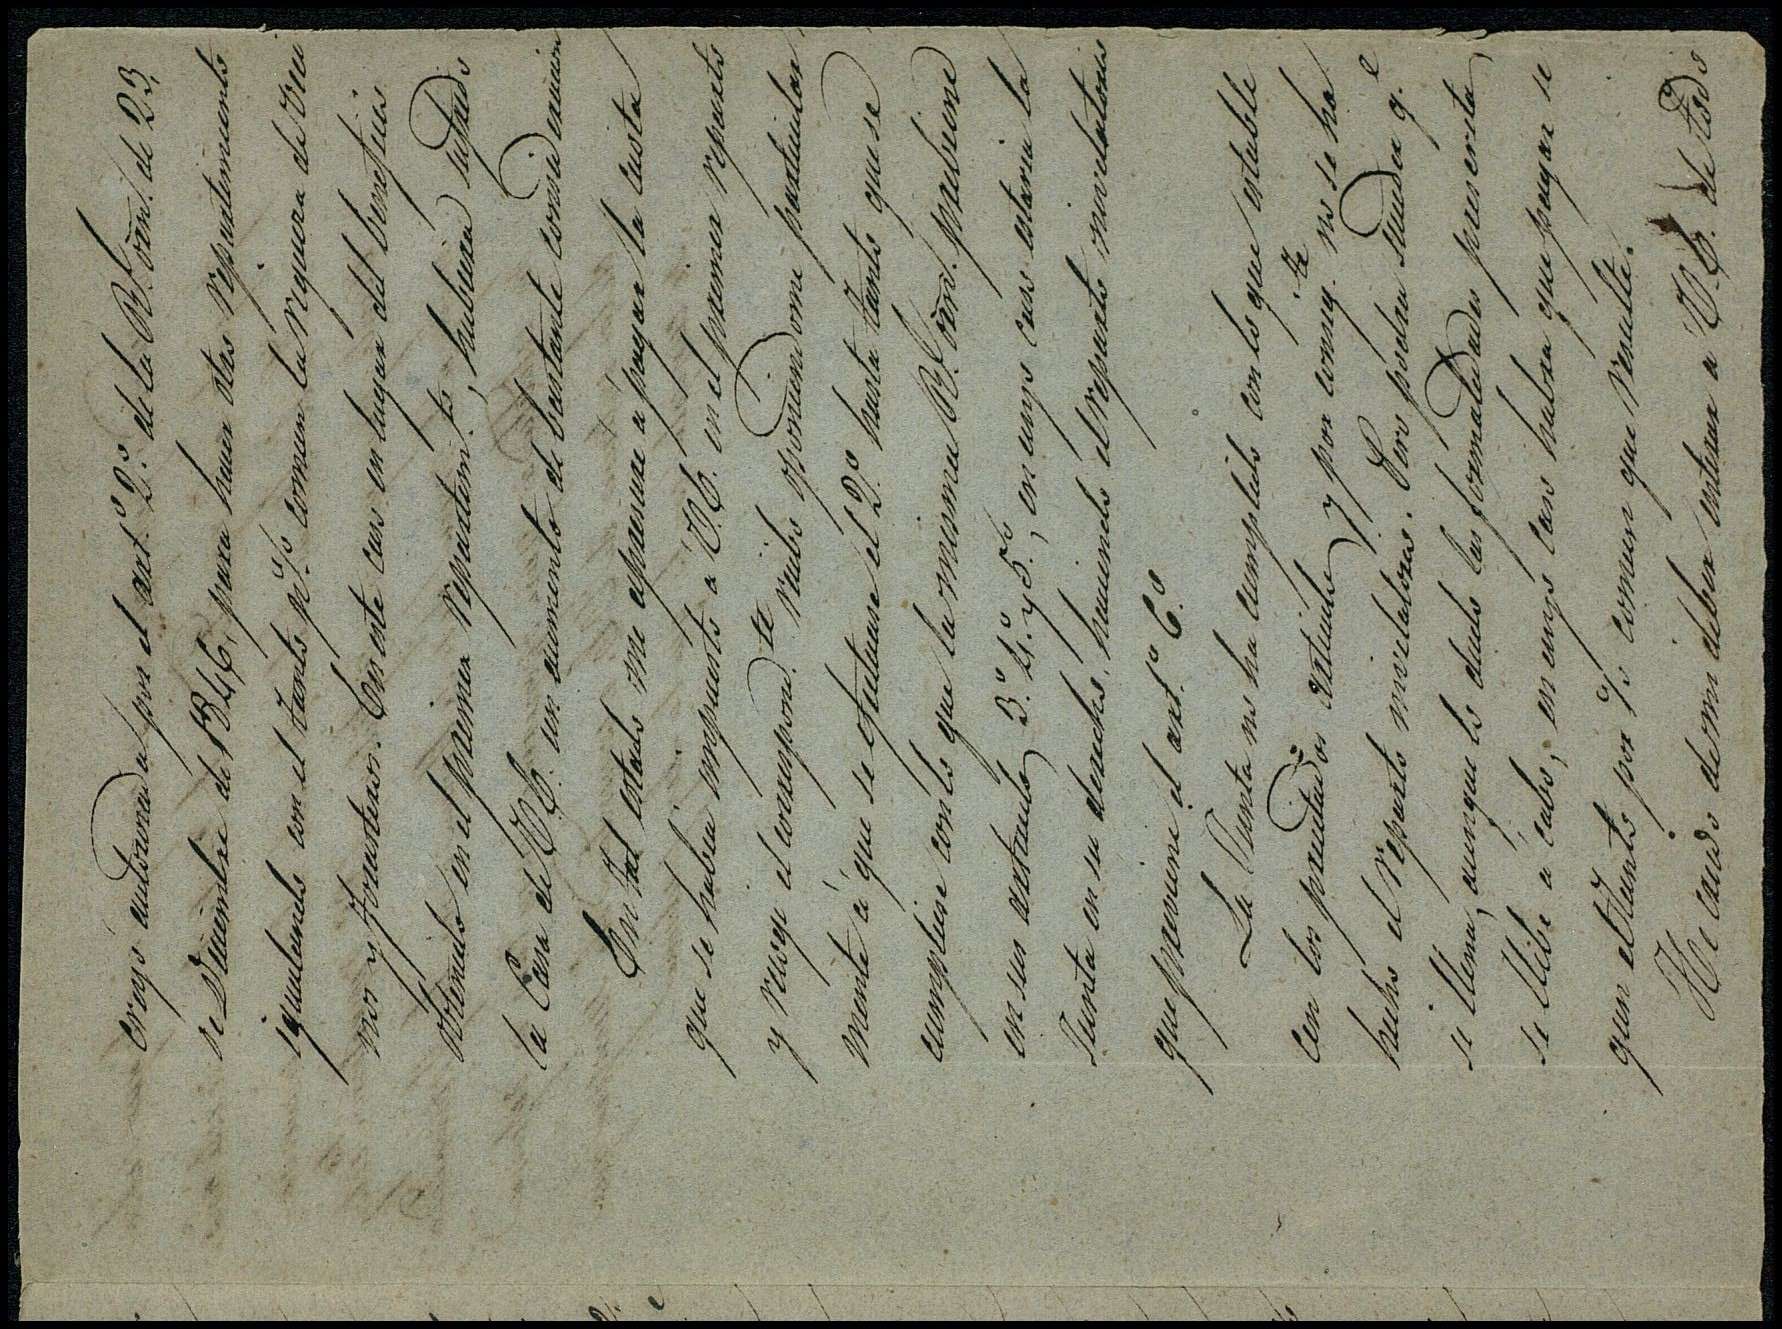 creyo autorizada por el art.º 2.º de la Rl. orn. de 23,
de Diciembre de 1846, para hacer otro repartimiento
igualando con el tanto p.% comun la riqueza de veci
nos y forasteros. En este caso en lugar del beneficio
obtenido en el primer repartim.to, hubiera sufrido
la Casa de V.E. un aumento de bastante consideracion
En tal estado me apersone a pagar la cuota
que se habia impuesto a V.E. en el primer reparto
y recogi el correspond.te recibo oponiendome particular
mente á que se efectuase el 2.º hasta tanto que se
cumpliese con lo que la misma Rl. orn. previene
en sus articulos 3.º 4.º y 5.º, en cuyo caso estaria la
Junta en su derecho, haciendo el reparto nivelatorio
que previene el art.º 6.º
La Junta no ha cumplido con lo que estable
cen los precitados articulos y por consig.te no se ha
hecho el reparto nivelatorio. Pero podrá suceder q.e
se llenen, aunque lo dudo las formalidades prescritas,
se llebe a cabo, en cuyo caso habra que pagar se
gun el tanto por % comun que resulte.
He creido de mi deber enterar a V.E. de todo